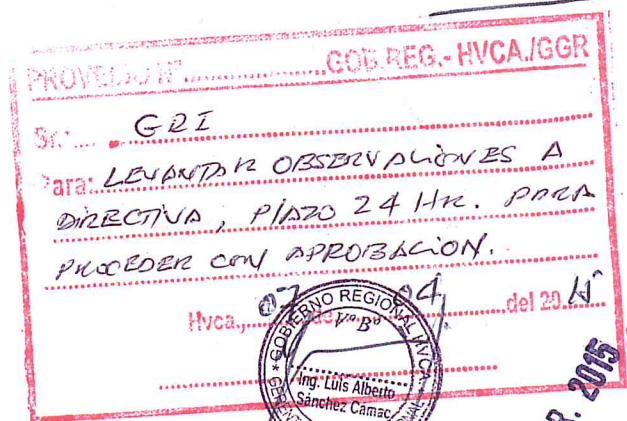 PROVEIDO Nº ............... GOB.REG.- HVCA./GGR
Sr.: .... GRI
Para: LEVANTAR OBSERVACIONES A
DIRECTIVA, PLAZO 24 HR. PARA
PROCEDER CON APROBACION.
Hvca., 07 de 04 del 20 15
GOBIERNO REGIONAL HVCA
VºBº
Ing. Luis Alberto
Sánchez Camac
2015